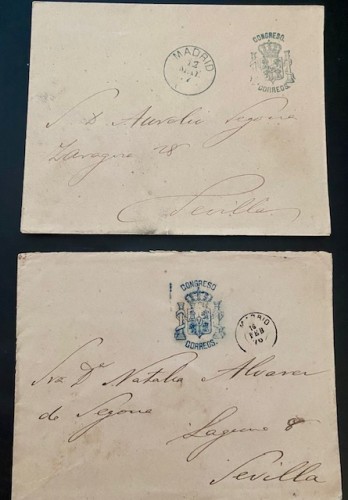 CONGRESO
CORREOS
MADRID
12
S. D. Aurelio Segovia
Zaragoza 18
Sevilla
CONGRESO
CORREOS.
MADRID
FEB
76
Sra Dª Natalia Alvarez
de Segovia
Laguna 8
Sevilla